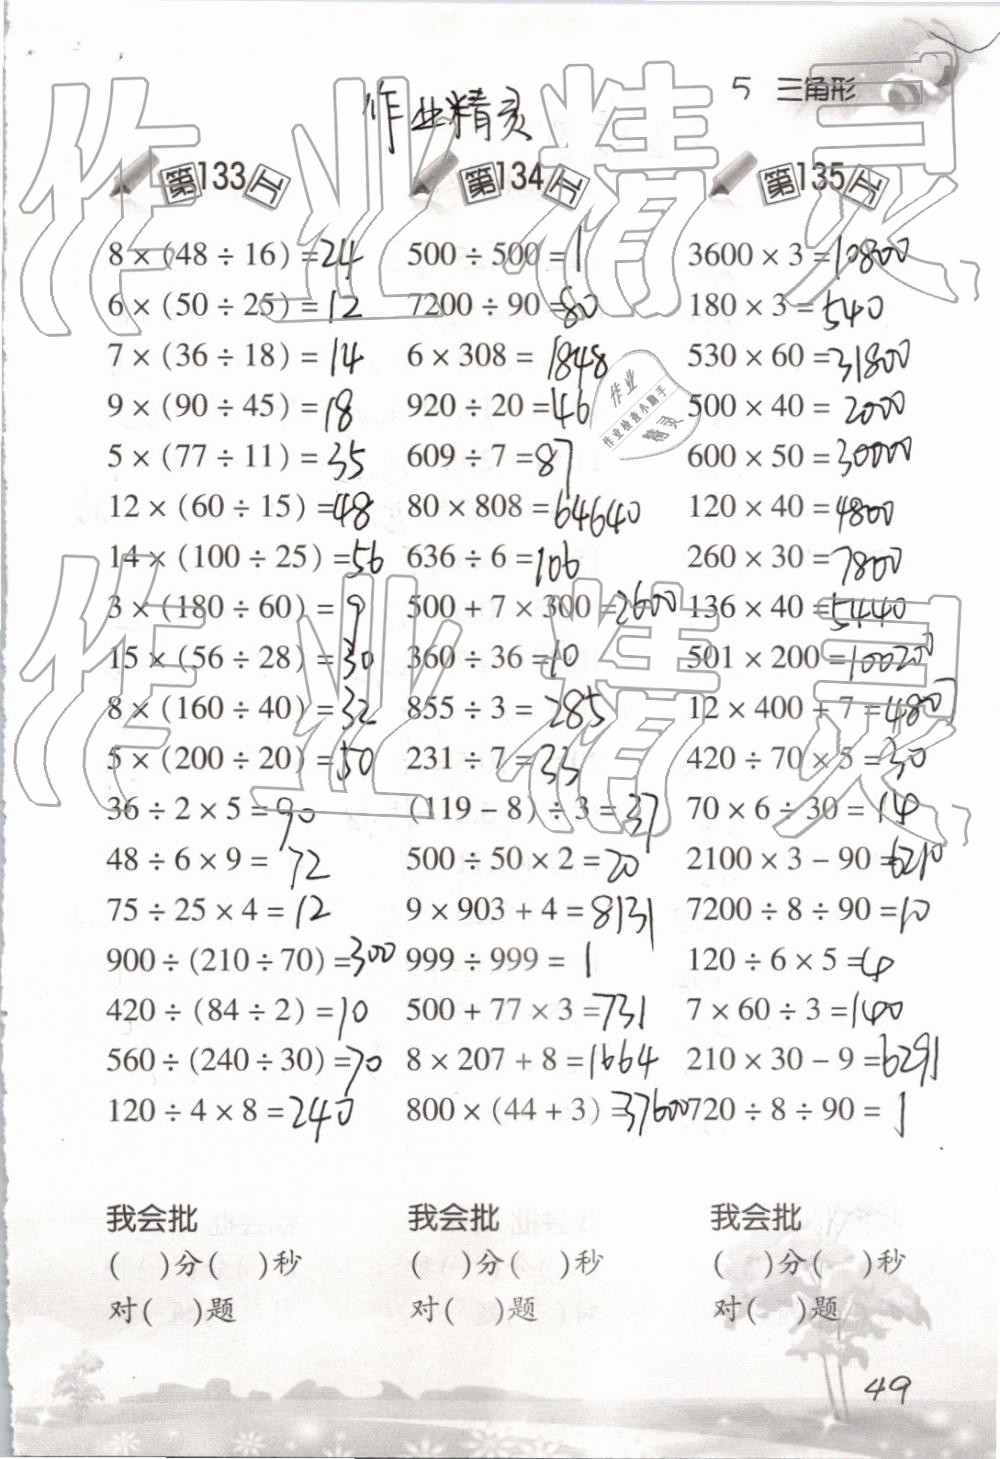 5 三角形
作业精灵
第133工
8 × (48 ÷ 16) = 24
6 × (50 ÷ 25) = 12
7 × (36 ÷ 18) = 14
9 × (90 ÷ 45) = 18
5 × (77 ÷ 11) = 35
12 × (60 ÷ 15) = 48
14 × (100 ÷ 25) = 56
3 × (180 ÷ 60) = 9
15 × (56 ÷ 28) = 30
8 × (160 ÷ 40) = 32
5 × (200 ÷ 20) = 50
36 ÷ 2 × 5 = 90
48 ÷ 6 × 9 = 72
75 ÷ 25 × 4 = 12
900 ÷ (210 ÷ 70) = 300
420 ÷ (84 ÷ 2) = 10
560 ÷ (240 ÷ 30) = 70
120 ÷ 4 × 8 = 240
我会批
( )分( )秒
对( )题
第134工
500 ÷ 500 = 1
7200 ÷ 90 = 80
6 × 308 = 1848
920 ÷ 20 = 46
609 ÷ 7 = 87
80 × 808 = 64640
636 ÷ 6 = 106
500 + 7 × 300 = 2600
360 ÷ 36 = 10
855 ÷ 3 = 285
231 ÷ 7 = 33
(119 − 8) ÷ 3 = 37
500 ÷ 50 × 2 = 20
9 × 903 + 4 = 8131
999 ÷ 999 = 1
500 + 77 × 3 = 731
8 × 207 + 8 = 1664
800 × (44 + 3) = 37600
我会批
( )分( )秒
对( )题
第135工
3600 × 3 = 10800
180 × 3 = 540
530 × 60 = 31800
500 × 40 = 2000
600 × 50 = 30000
120 × 40 = 4800
260 × 30 = 7800
136 × 40 = 5440
501 × 200 = 100200
12 × 400 + 7 = 4807
420 ÷ 70 × 5 = 30
70 × 6 ÷ 30 = 14
2100 × 3 − 90 = 6210
7200 ÷ 8 ÷ 90 = 10
120 ÷ 6 × 5 = 4
7 × 60 ÷ 3 = 140
210 × 30 − 9 = 6291
720 ÷ 8 ÷ 90 = 1
我会批
( )分( )秒
对( )题
作业
作业检查小助手
精灵
作业精灵
作业精灵
49